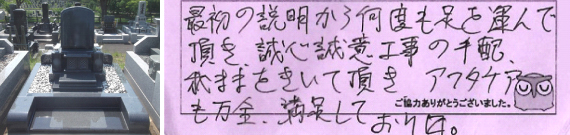 最初の説明から何度も足を運んで
頂き、誠心誠意工事の手配、
我ままをきいて頂き アフタケア
も万全、満足して
おり〼。
ご協力ありがとうございました。